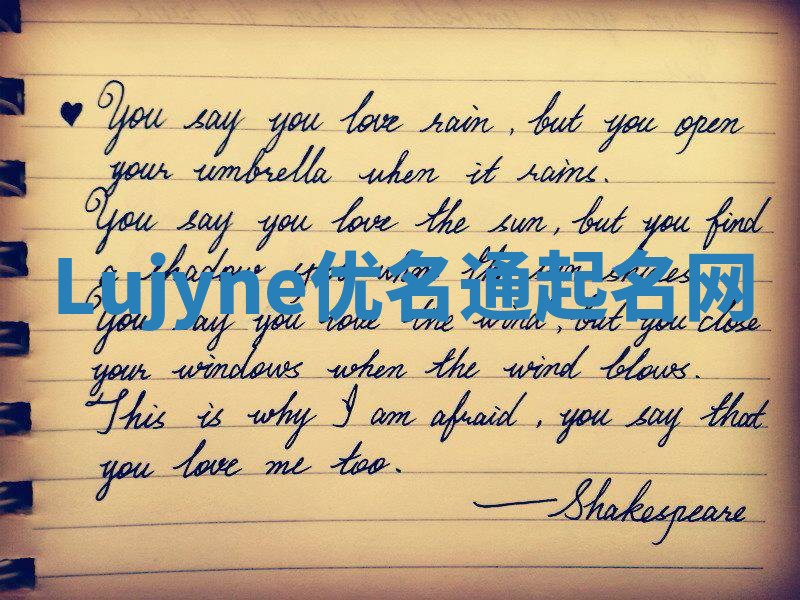 ♥ You say you love rain, but you open
your umbrella when it rains.
You say you love the sun, but you find
a shadow spot when the sun shines.
Lujyne优名通起名网
You say you love the wind, but you close
your windows when the wind blows.
This is why I am afraid, you say that
you love me too.
—Shakespeare